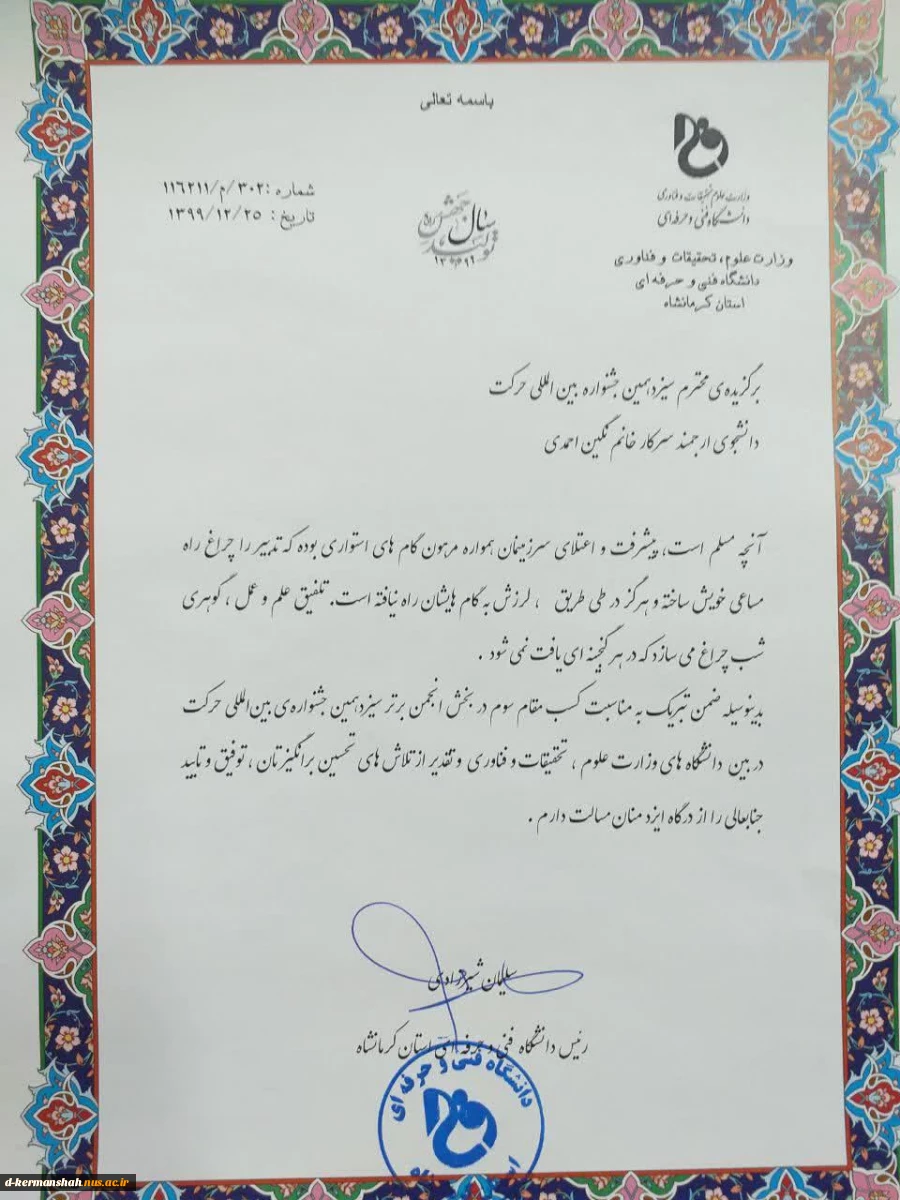 باسمه تعالی
وزارت علوم تحقیقات و فناوری
دانشگاه فنی و حرفه‌ای
شماره :۱۱۶۲۱۱/م/۳۰۲
تاریخ : ۱۳۹۹/۱۲/۲۵
سال
جهش
تولید
۱۳۹۹
وزارت علوم، تحقیقات و فناوری
دانشگاه فنی و حرفه ای
استان کرمانشاه
برگزیده‌ی محترم سیزدهمین جشنواره بین المللی حرکت
دانشجوی ارجمند سرکار خانم نگین احمدی
آنچه مسلم است، پیشرفت و اعتلای سرزمینمان همواره مرهون گام های استواری بوده که تدبیر را چراغ راه
مساعی خویش ساخته و هرگز در طی طریق ، لرزش به گام هایشان راه نیافته است. تلفیق علم و عمل ، گوهری
شب چراغ می سازد که در هر گنجینه ای یافت نمی شود .
بدینوسیله ضمن تبریک به مناسبت کسب مقام سوم در بخش انجمن برتر سیزدهمین جشنواره‌ی بین‌المللی حرکت
در بین دانشگاه های وزارت علوم ، تحقیقات و فناوری و تقدیر از تلاش های تحسین برانگیزتان ، توفیق و تایید
جنابعالی را از درگاه ایزد منان مسالت دارم .
سلیمان شیرزادی
رئیس دانشگاه فنی و حرفه ای استان کرمانشاه
دانشگاه فنی و حرفه ای
d-kermanshah.nus.ac.ir